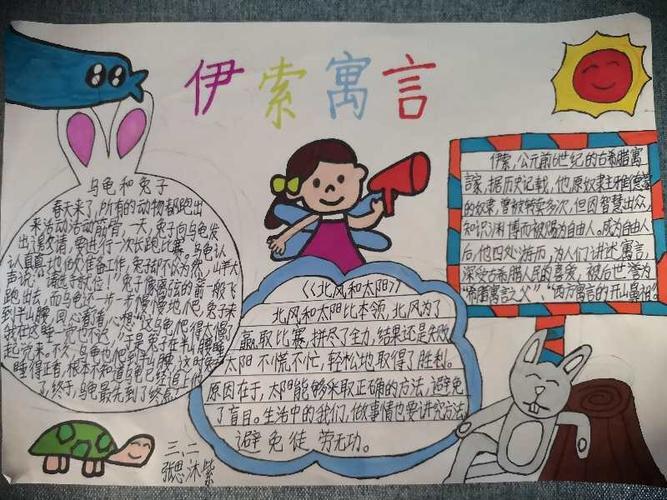 伊索寓言
乌龟和兔子
春天来了,所有的动物都跑出
来活动活动筋骨,一天,兔子向乌龟发
出邀请,要进行一次长跑比赛。乌龟认
认真真地做准备工作,兔子却不以为然,山羊大
喜说:"请选手就位!"兔子像离弦的箭一般飞
跑出去,而乌龟还一步一步慢慢地爬,兔子来
到半山腰,回头看看,心想:"这乌龟爬得太慢了
我在这睡一觉也不迟。"于是兔子在半山腰睡
起觉来。不久,乌龟也爬到半山腰,这时兔子
睡得正香,根本不知道乌龟已经追上他
了,终于,乌龟最先到了终点!
《北风和太阳》
北风和太阳比本领,北风为了
赢取比赛,拼尽了全力,结果还是失败。
太阳不慌不忙,轻松地取得了胜利。
原因在于,太阳能够采取正确的方法,避免
了盲目。生活中的我们,做事情也要讲究方法,
避免徒劳无功。
伊索,公元前6世纪的古希腊寓
言家,据历史记载,他原奴隶主雅德蒙
的奴隶,曾被转卖多次,但因智慧出众,
知识渊博而被赐为自由人。成为自由人
后,他四处游历,为人们讲述寓言,
深受古希腊人民的喜爱,被后世誉为
"希腊寓言之父""西方寓言的开山鼻祖"
三、二
张思沐紫